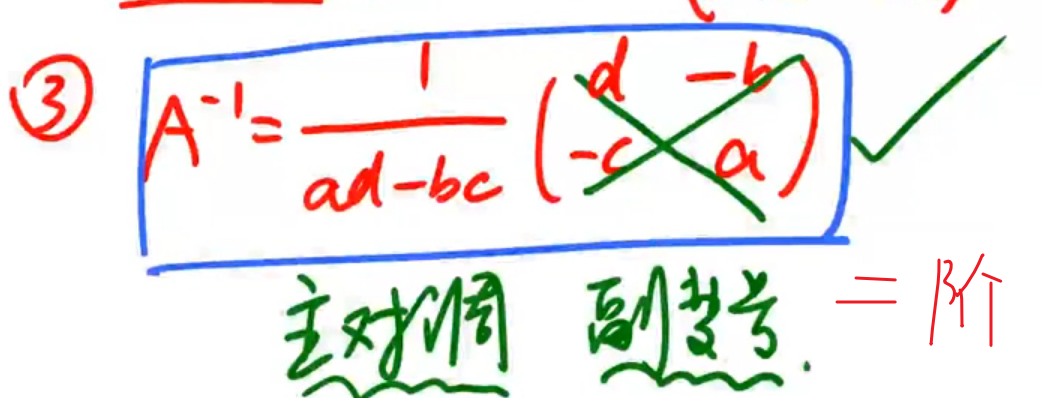 ③ A⁻¹ = 1/(ad-bc) (d -b
-c a)
主对调 副变号. 二阶